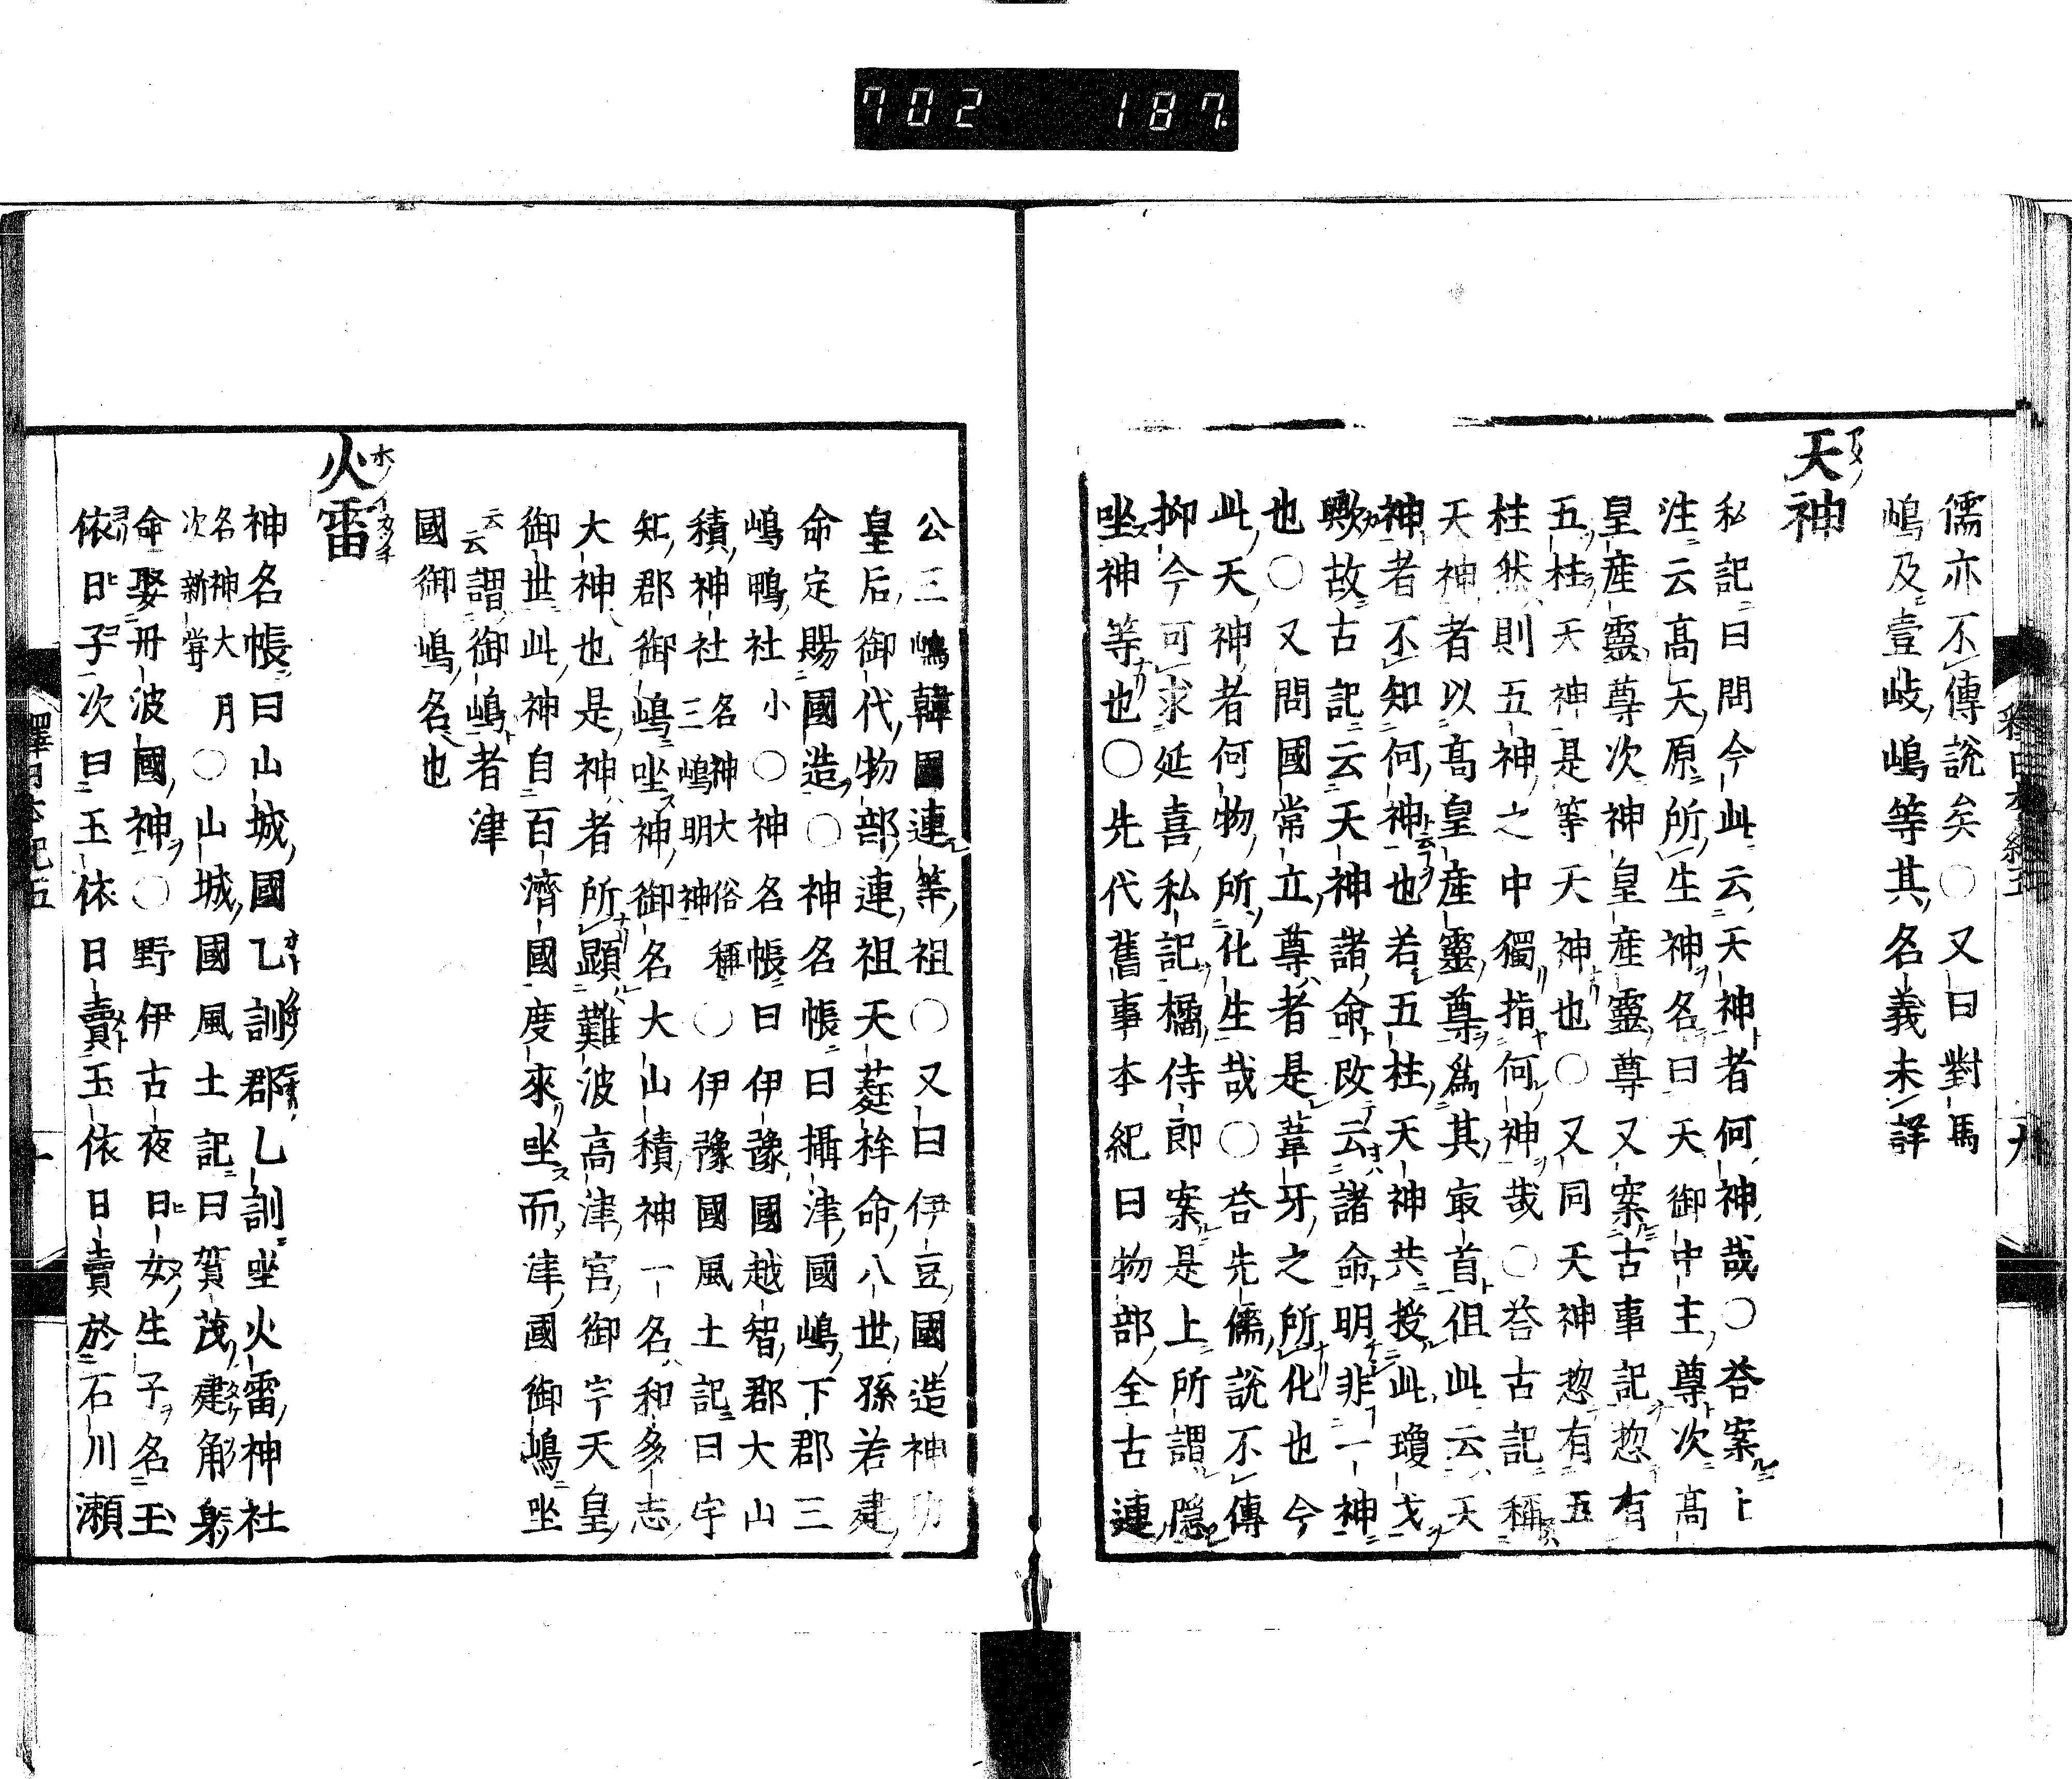 702 187
儒亦不傳說矣〇又曰對馬
嶋及壹岐嶋等其名義未詳
天神
私記曰問今此云天神者何神哉〇荅案上
注云高天原所生神名曰天御中主尊次高
皇産靈尊次神皇産靈尊又案古事記惣有
五柱天神是等天神也〇又同天神惣有五
柱然則五神之中獨指何神哉〇荅古記稱
天神者以高皇産靈尊爲其㝡首但此云天
神者不知何神也若五柱天神共授此瓊戈
歟故古記云天神諸命改云諸命明非一神
也〇又問國常立尊者是葦牙之所化也今
此天神者何物所化生哉〇荅先儒說不傳
抑今可求延喜私記橘侍郎案是上所謂隱
坐神等也〇先代舊事本紀曰物部全古連
公三嶋韓國連等祖〇又曰伊豆國造神功
皇后御代物部連祖天蕤桙命八世孫若建
命定賜國造〇神名帳曰攝津國嶋下郡三
嶋鴨社小〇神名帳曰伊豫國越智郡大山
積神社名神大俗稱三嶋明神〇伊豫國風土記曰宇
知郡御嶋坐神御名大山積神一名和多志
大神也是神者所顯難波高津宮御宇天皇
御世此神自百濟國度來坐而津國御嶋坐
云云謂御嶋者津
國御嶋名也
火雷
神名帳曰山城國乙訓郡乙訓坐火雷神社
名神大月次新嘗〇山城國風土記曰賀茂建角身
命娶丹波國神〇野伊古夜日女生子名玉
依日子次曰玉依日賣玉依日賣於石川瀬